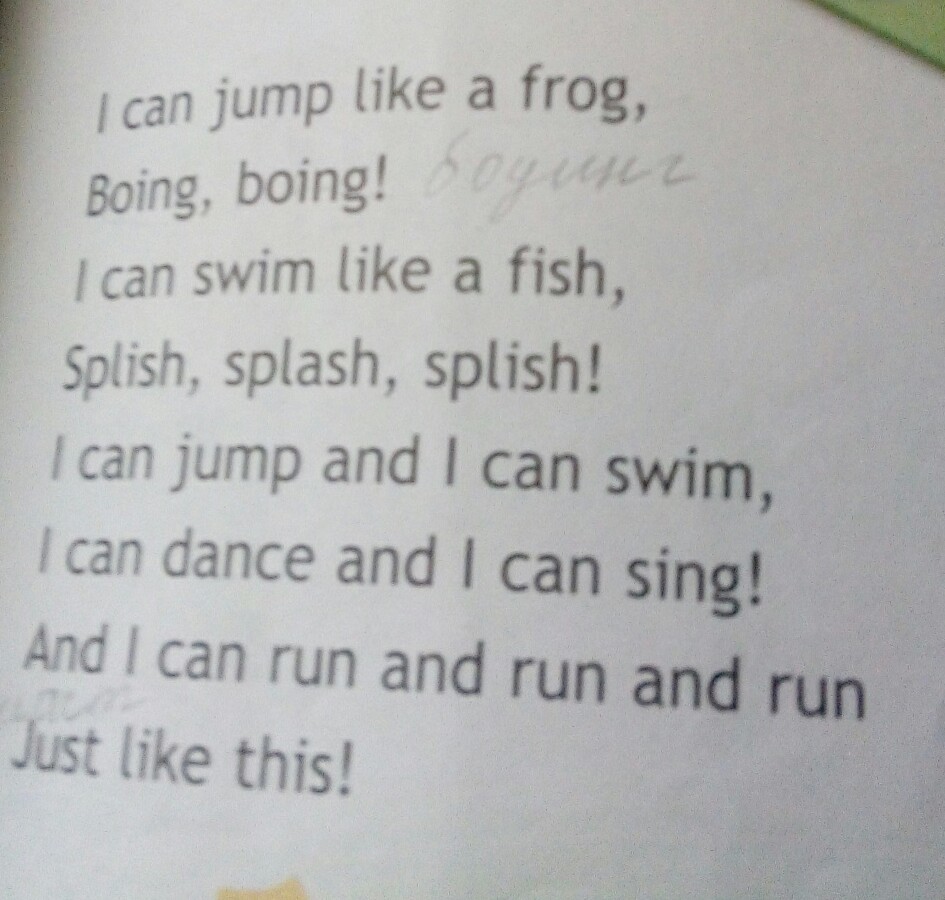 I can jump like a frog,
Boing, boing! боуинг
I can swim like a fish,
Splish, splash, splish!
I can jump and I can swim,
I can dance and I can sing!
And I can run and run and run
Just like this!